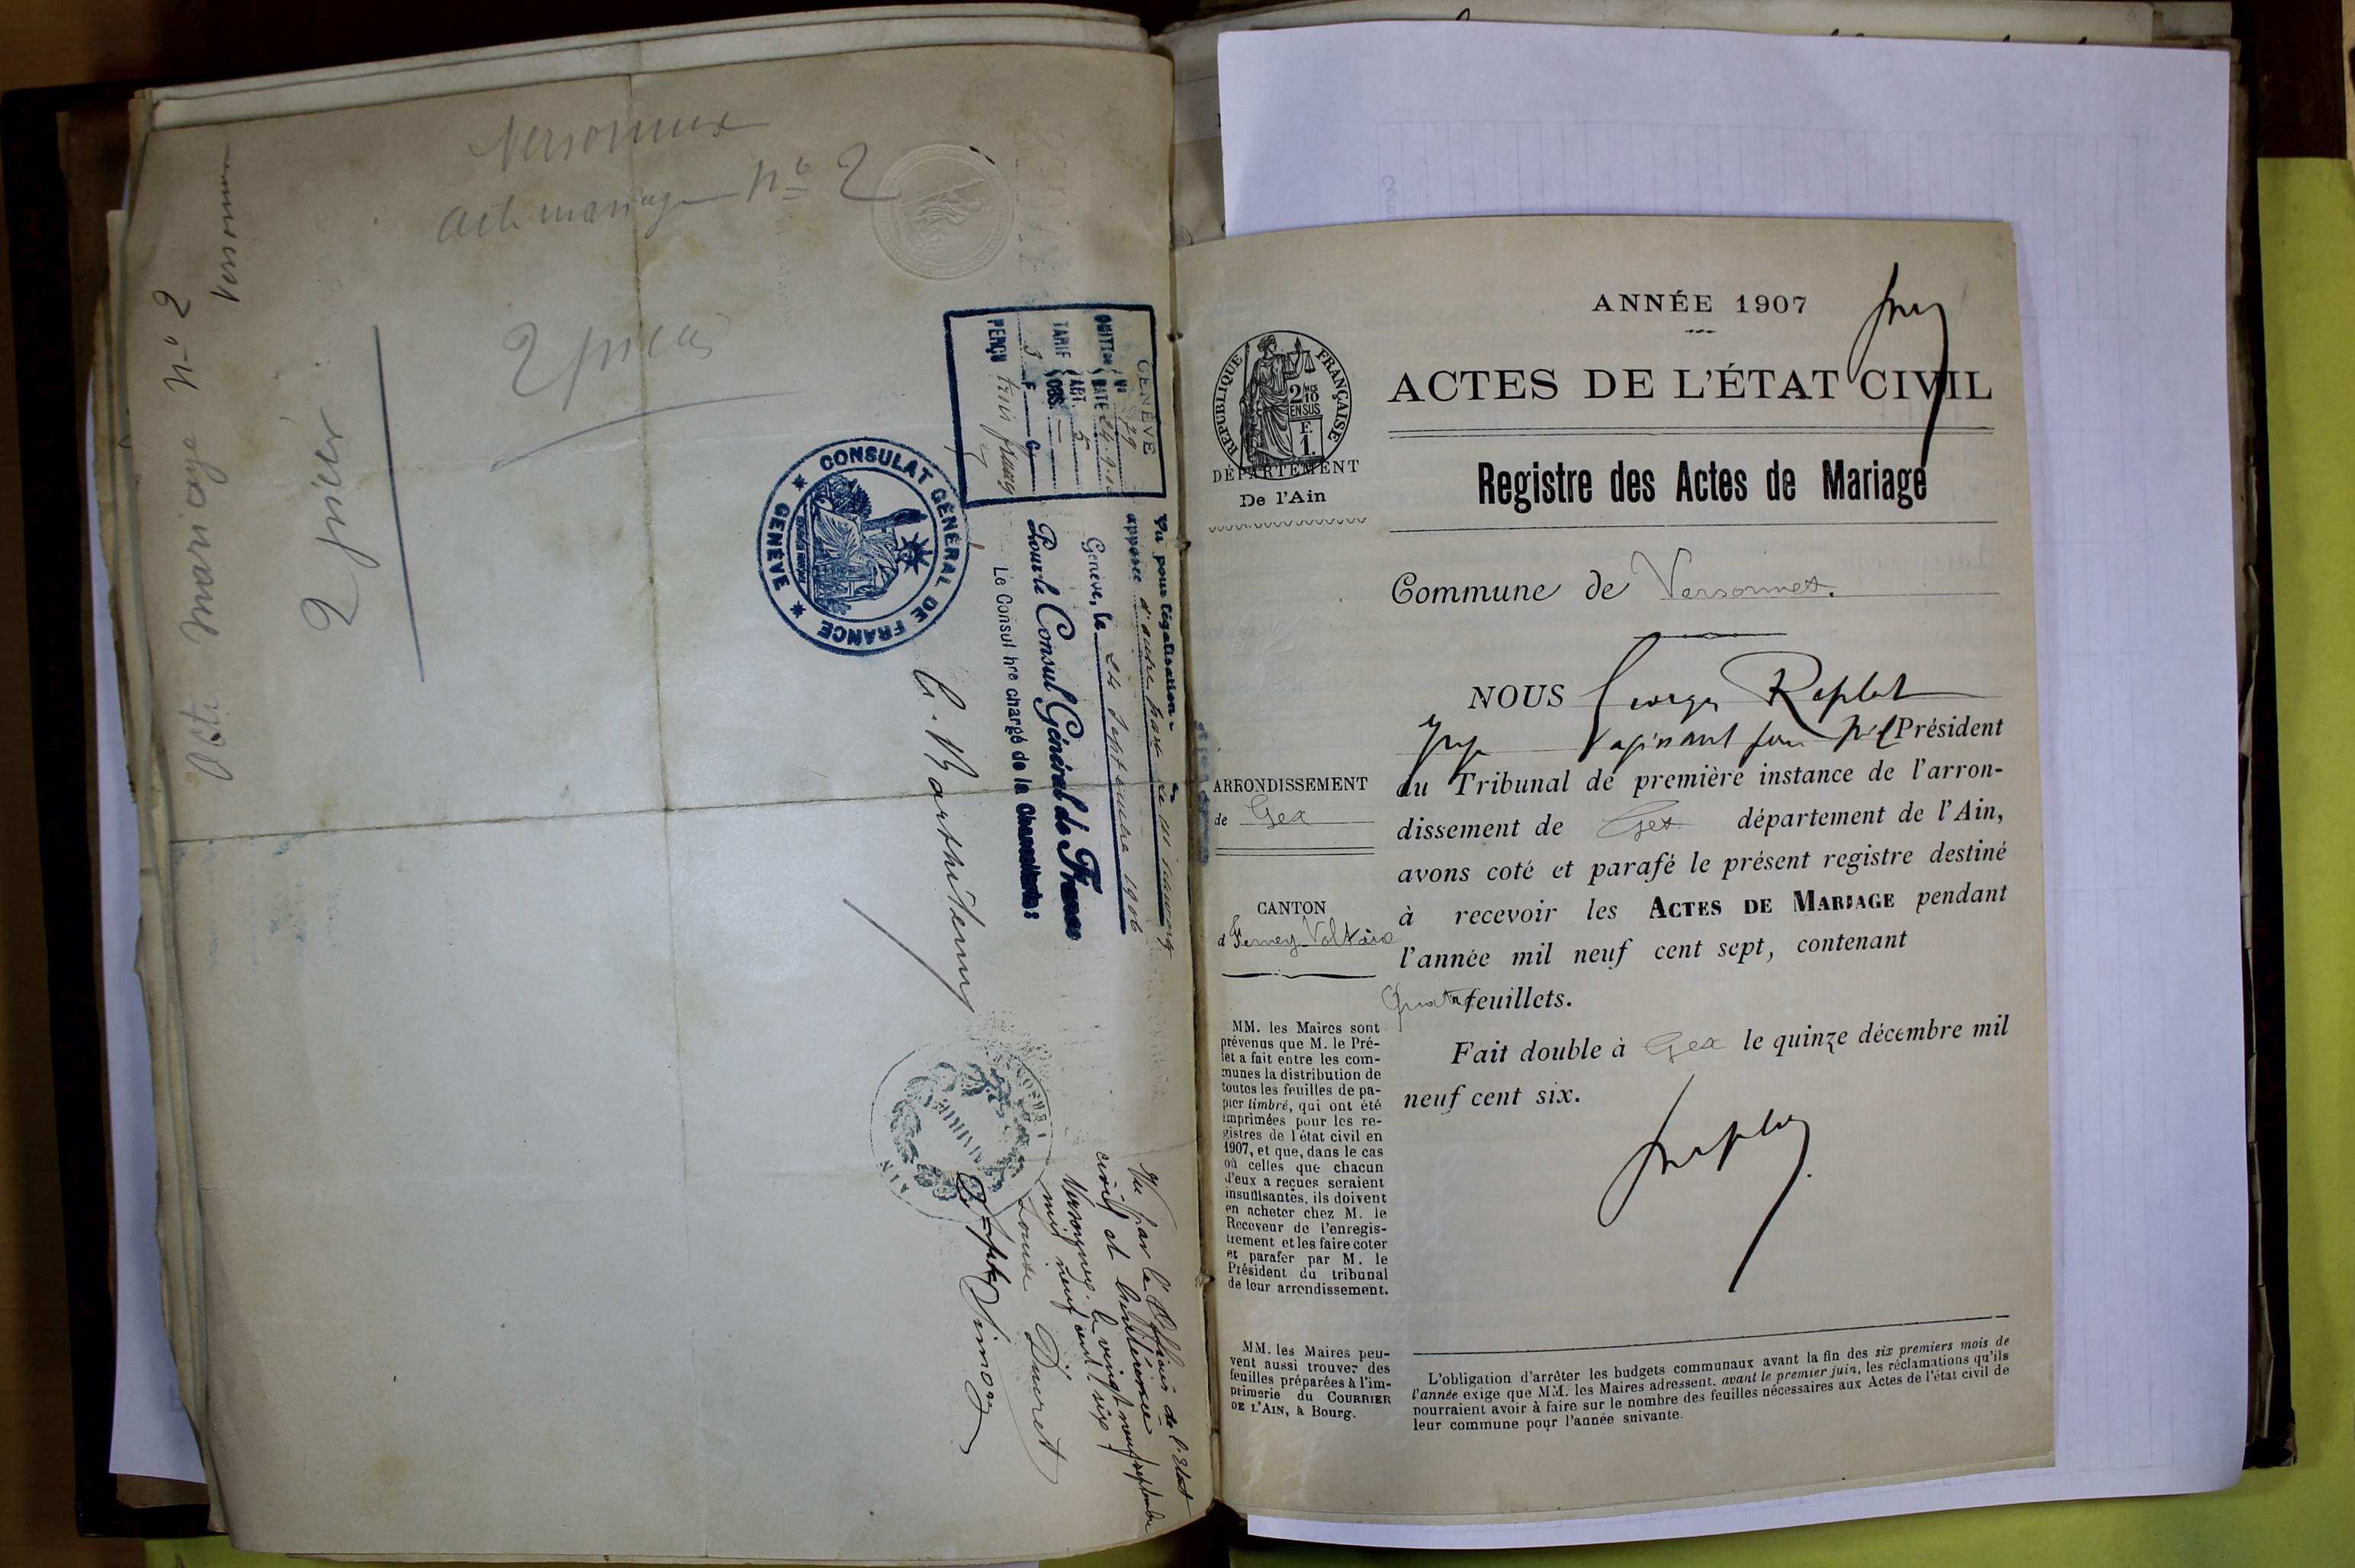 Versonnex
Acte mariage nº 2
2 pièces
Versonnex
Acte mariage nº 2
2 pièces
GENÈVE
QUITTce Nº 79
DATE 24.9.
TARIF ART. 5
OBS. —
3 F. C.
PERÇU trois francs
Vu pour légalisation
apposée d'autre part
Genève, le 24 Septembre 1906
Pour le Consul Général de France
Le Consul hre chargé de la Chancellerie:
CONSULAT GÉNÉRAL DE FRANCE
★ GENÈVE ★
AIN
Vu par l'Officier de l'Etat
civil et
Versonnex le vingt neuf septembre
mil neuf cent six
Louise Ducret
ANNÉE 1907
ACTES DE L'ÉTAT CIVIL
RÉPUBLIQUE FRANÇAISE
2/10
EN SUS
F.
1.
DÉPARTEMENT
De l'Ain
Registre des Actes de Mariage
Commune de Versonnex.
NOUS Georges Replat
Juge Président
du Tribunal de première instance de l'arron-
dissement de Gex département de l'Ain,
avons coté et parafé le présent registre destiné
à recevoir les ACTES DE MARIAGE pendant
l'année mil neuf cent sept, contenant
Quatre feuillets.
Fait double à Gex le quinze décembre mil
neuf cent six.
ARRONDISSEMENT
de Gex
CANTON
d Ferney-Voltaire
MM. les Maires sont
prévenus que M. le Pré-
fet a fait entre les com-
munes la distribution de
toutes les feuilles de pa-
pier timbré, qui ont été
imprimées pour les re-
gistres de l'état civil en
1907, et que, dans le cas
où celles que chacun
d'eux a reçues seraient
insuffisantes, ils doivent
en acheter chez M. le
Receveur de l'enregis-
trement et les faire coter
et parafer par M. le
Président du tribunal
de leur arrondissement.
MM. les Maires peu-
vent aussi trouver des
feuilles préparées à l'im-
primerie du COURRIER
DE L'AIN, à Bourg.
L'obligation d'arrêter les budgets communaux avant la fin des six premiers mois de
l'année exige que MM. les Maires adressent, avant le premier juin, les réclamations qu'ils
pourraient avoir à faire sur le nombre des feuilles nécessaires aux Actes de l'état civil de
leur commune pour l'année suivante.